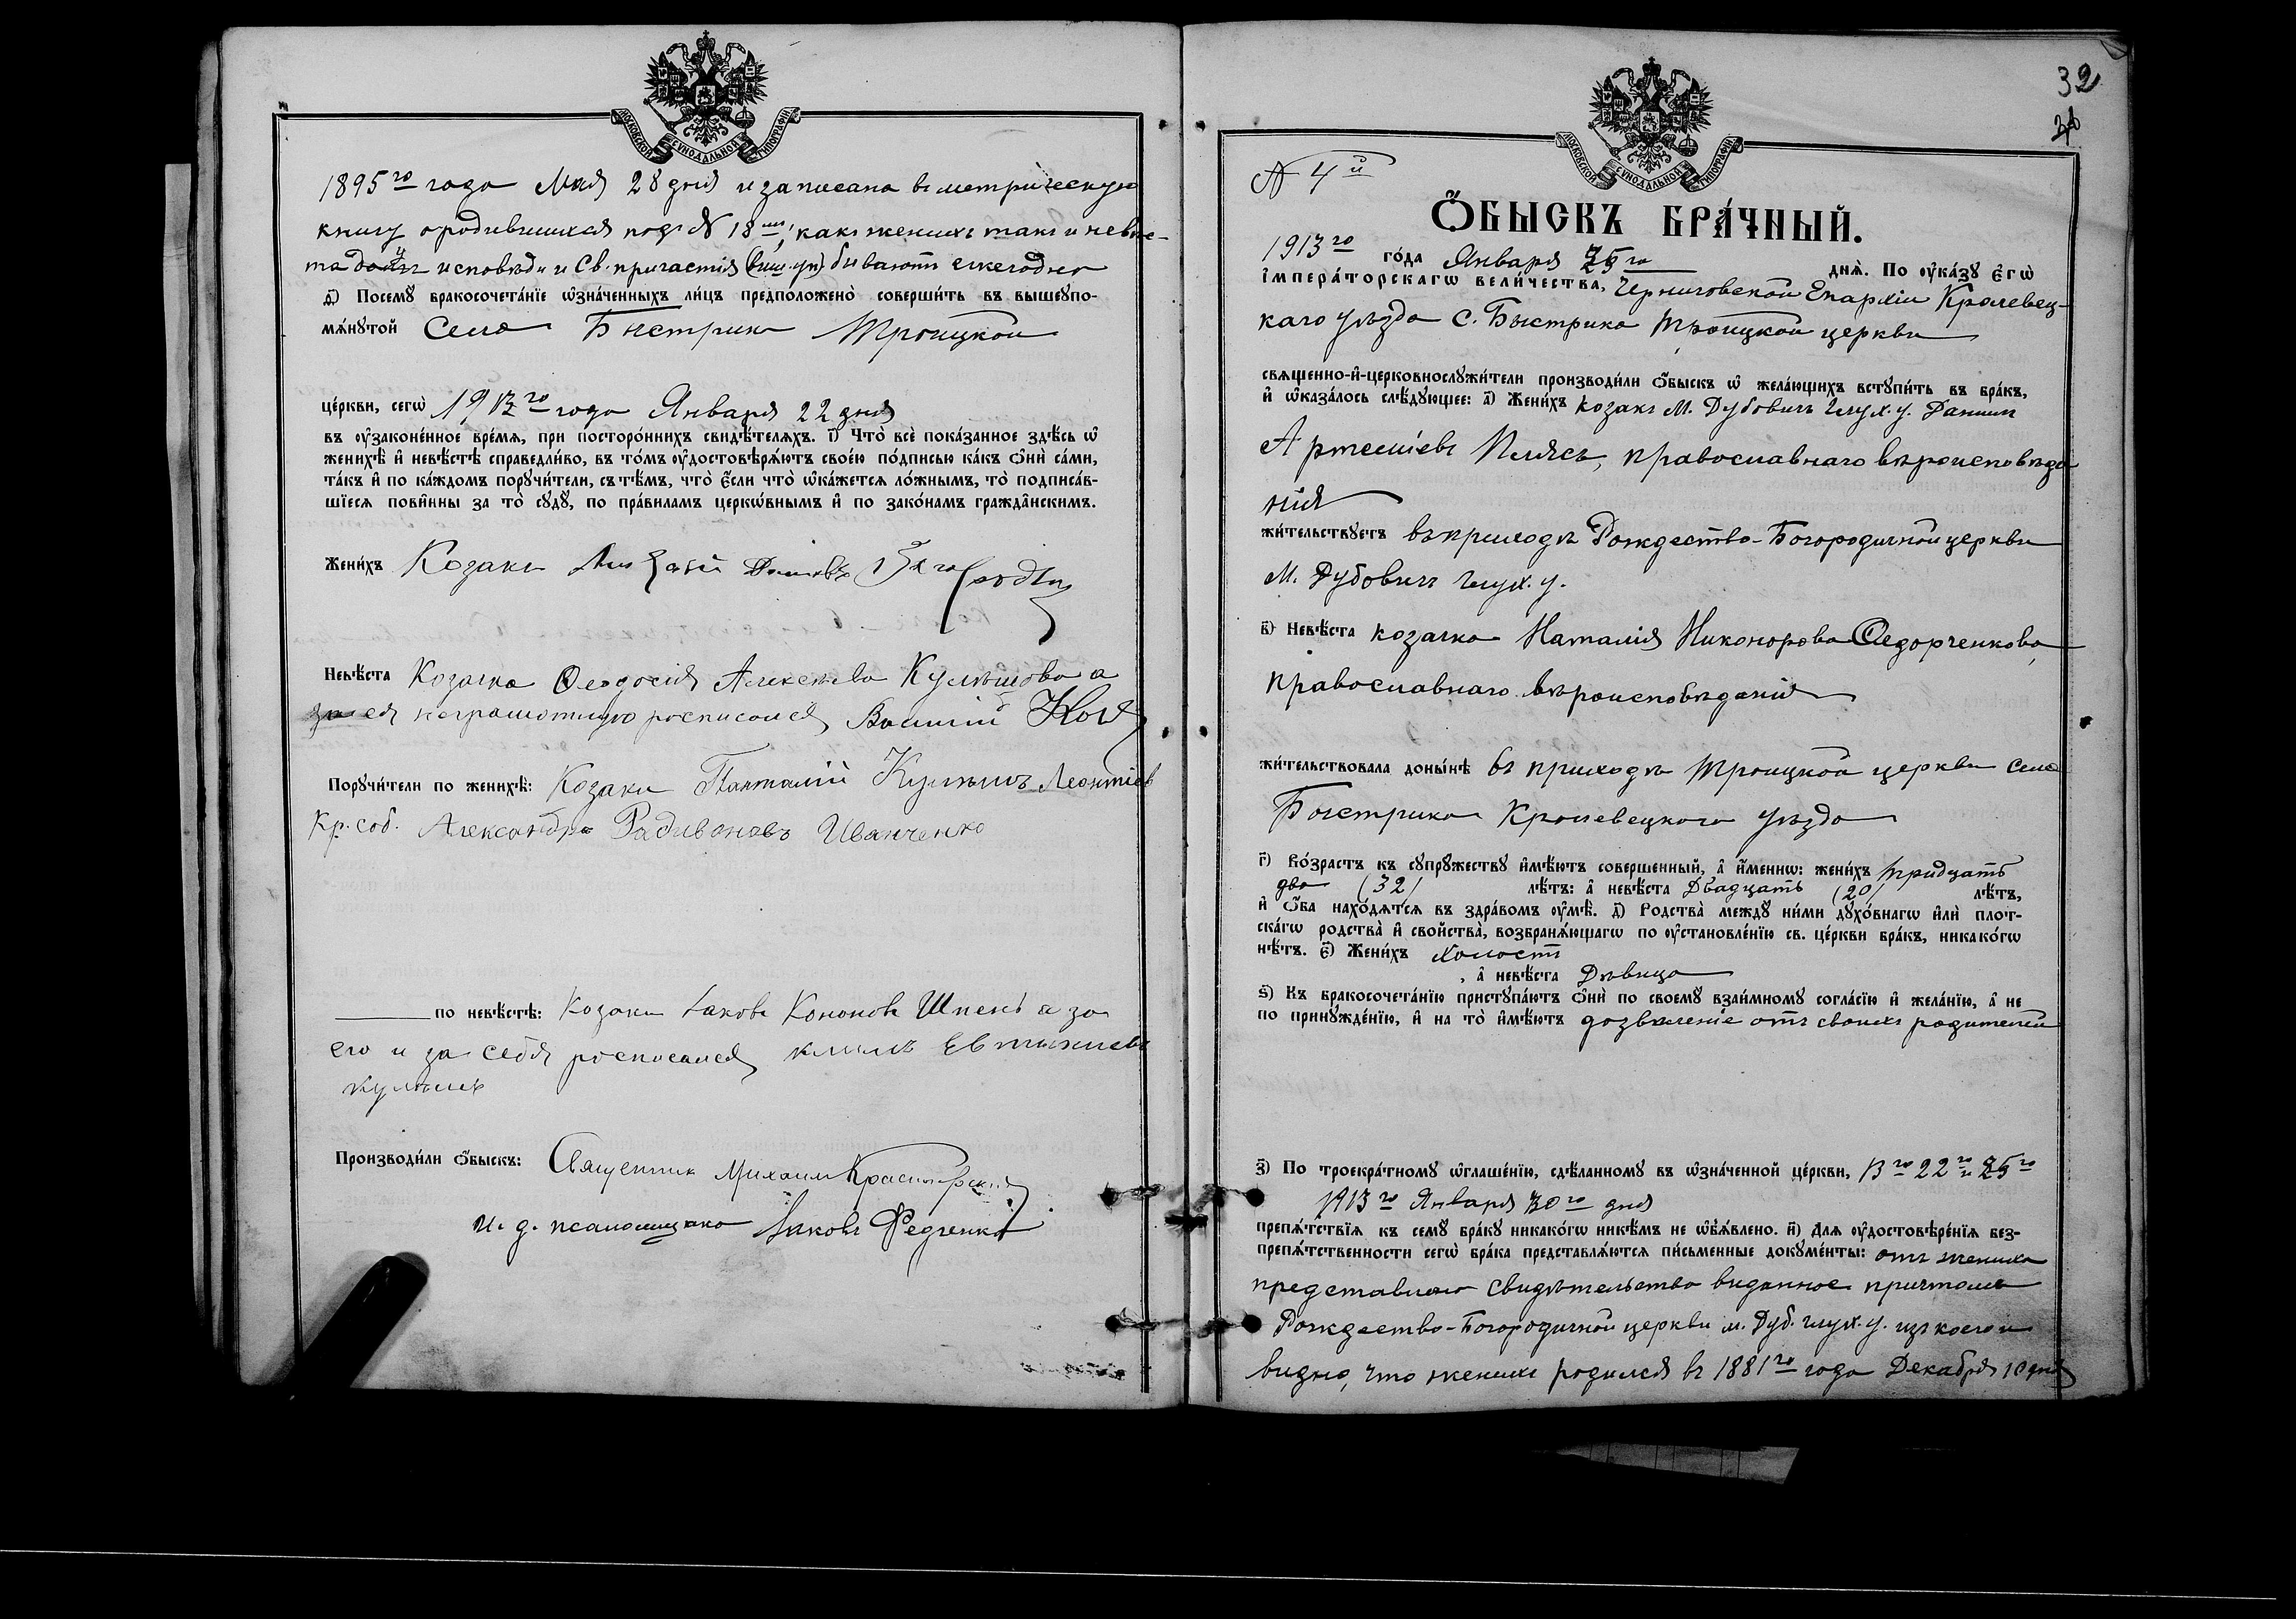 МОСКОВСКОЙ СѴНОДАЛЬНОЙ ТИПОГРАФІИ
1895го года Мая 28 дня и записана въ метрическую
книгу о родившихся подъ № 18мъ; какъ женихъ такъ и невѣс-
та у исповѣди и Св. причастія бываютъ ежегодно
д҃) Посемꙋ бракосочета́нїе ѡ҆зна́ченныхъ ли́цъ предположено̀ соверши́ть въ вышеꙋпо-
мѧ́нꙋтой Села Быстрика Троицкой
це́ркви, сегѡ̀ 1913го года Января 22 дня
въ ᲂу҆законе́нное вре́мѧ, при посторо́ннихъ свидѣ́телѧхъ. і҃) Что̀ всѐ пока́занное здѣ́сь ѡ҆
женихѣ̀ и҆ невѣ́стѣ справедли́во, въ то́мъ ᲂу҆достовѣрѧ́ютъ свое́ю по́дписью ка́къ ѻ҆нѝ са́ми,
та́къ и҆ по ка́ждомъ порꙋчи́тели, съ тѣ́мъ, что̀ є҆́сли что̀ ѡ҆ка́жетсѧ ло́жнымъ, то̀ подписа́в-
шїесѧ пови́нны за то̀ сꙋдꙋ̀, по пра́виламъ церкѡ́внымъ и҆ по зако́намъ гражда̑нскимъ.
Жени́хъ Козакъ
Невѣ́ста Козачка Ѳеодосія Алексѣева Кулѣшова а
за ея неграмотную росписался Василій
Порꙋчи́тели по женихѣ̀: Козаки Кулѣшъ Леонтіев
Кр. соб. Александръ Радивоновъ Иванченко
по невѣ́стѣ: Козаки Іаковъ Кононовъ Шпень а за
его и за себя росписался Климъ Евтихіевъ
Кулѣшъ
Производи́ли ѻ҆́быскъ: Священникъ Михаилъ
и. д. псаломщика Іаковъ Федченко
32
МОСКОВСКОЙ СѴНОДАЛЬНОЙ ТИПОГРАФІИ
№ 4й
Ѻ҆́БЫСКЪ БРА́ЧНЫЙ.
1913го го́да Января 25го днѧ̀. По ᲂу҆ка́зꙋ є҆гѡ̀
і҆мпера́торскагѡ вели́чества, Черниговской Епархіи Кролевец-
каго уѣзда С. Быстрика Троицкой церкви
свѧщенно-и҆-церковнослꙋжи́тели производи́ли ѻ҆́быскъ ѡ҆ жела́ющихъ встꙋпи́ть въ бра́къ,
и҆ ѡ҆каза́лось слѣ́дꙋющее: а҃) Жени́хъ козакъ М. Дубовичъ Глух. у. Даніилъ
Артеміевъ Плясъ, православнаго вѣроисповѣда
нія
жи́тельствꙋетъ въ приходѣ Рождество-Богородичной церкви
М. Дубовичъ Глух. у.
в҃) Невѣ́ста козачка Наталія Никонорова Ѳедорченкова,
православнаго вѣроисповѣданія
жи́тельствовала доны́нѣ въ приходѣ Троицкой церкви села
Быстрика Кролевецкаго уѣзда
г҃) Во́зрастъ къ сꙋпрꙋ́жествꙋ и҆мѣ́ютъ соверше́нный, а҆ и҆́меннѡ: жени́хъ тридцать
два (32) лѣ́тъ: а҆ невѣ́ста Двадцать (20) лѣ́тъ,
и҆ ѻ҆́ба нахо́дѧтсѧ въ здра́вомъ ᲂу҆мѣ̀. д҃) Родства̀ междꙋ̀ ни́ми дꙋхо́внагѡ и҆лѝ плот-
ска́гѡ родства̀ и҆ свойства̀, возбранѧ́ющагѡ по ᲂу҆становле́нїю св. це́ркви бра́къ, никако́гѡ
нѣ́тъ. є҃) Жени́хъ Холостъ
, а҆ невѣ́ста Дѣвица
ѕ҃) Къ бракосочета́нїю пристꙋпа́ютъ ѻ҆нѝ по своемꙋ̀ взаи́мномꙋ согла́сїю и҆ жела́нїю, а҆ не
по принꙋжде́нїю, и҆ на то̀ и҆мѣ́ютъ дозволеніе отъ своихъ родителей
з҃) По троекра́тномꙋ ѡ҆глаше́нїю, сдѣ́ланномꙋ въ ѡ҆зна́ченной це́ркви, 13го 22го и 25го
1913го Января 30го дня
препѧ́тствїѧ къ семꙋ̀ бра́кꙋ никако́гѡ никѣ́мъ не ѡ҆б̾ѧ́влено. и҃) Длѧ ᲂу҆достовѣре́нїѧ без-
препѧ́тственности сегѡ̀ бра́ка представлѧ́ютсѧ пи́сьменные докꙋме́нты: отъ жениха
представлено свидѣтельство виданное причтомъ
Рождество-Богородичной церкви м. Дуб. Глух. у. изъ коего и
видно, что женихъ родился въ 1881го года Декабря 10 дня